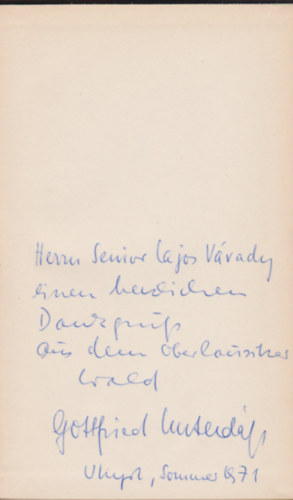 Herrn Senior Lajos Várady
einen herzlichen
Dankgruß
aus dem Oberlausitzer
Wald
Gottfried Unterdörfer
Uhyst, Sommer 1971